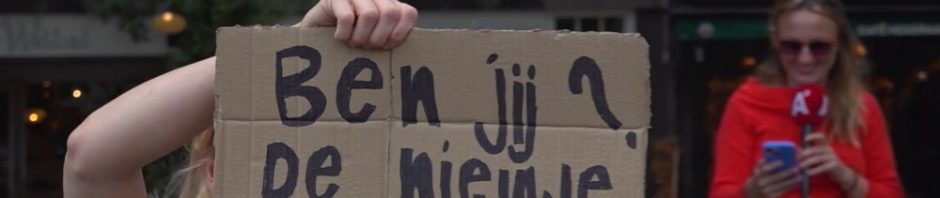 Ben jij?
De nieuwe
A